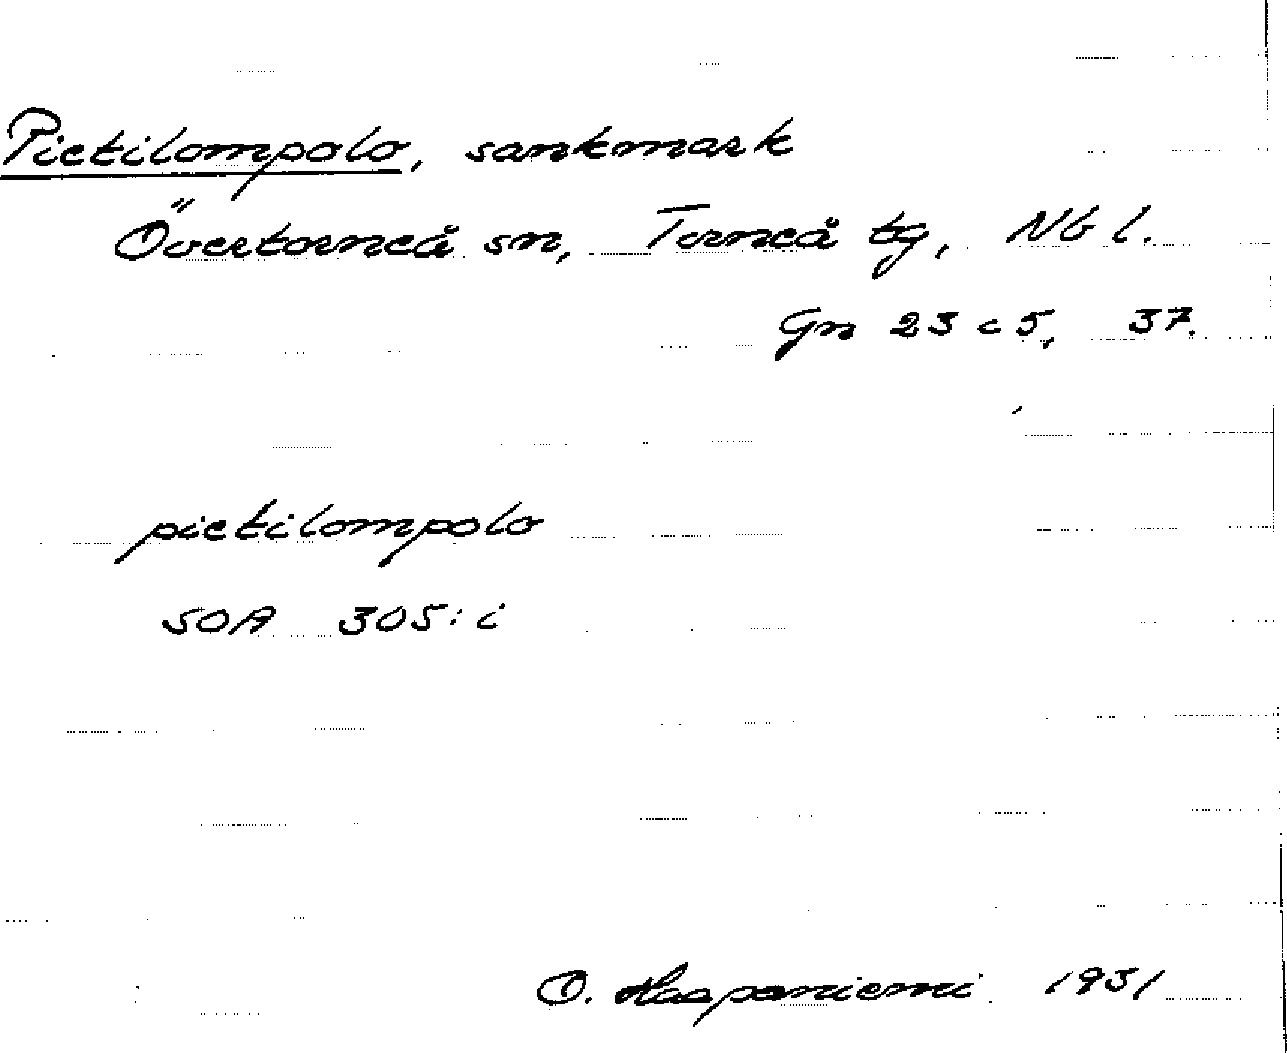 Pietilompolo, sankmark
Övertorneå sn, Torneå tg, Nb l.
Gn 23 c 5, 37.
pietilompolo
SOA 305: i
O. Haapaniemi 1931